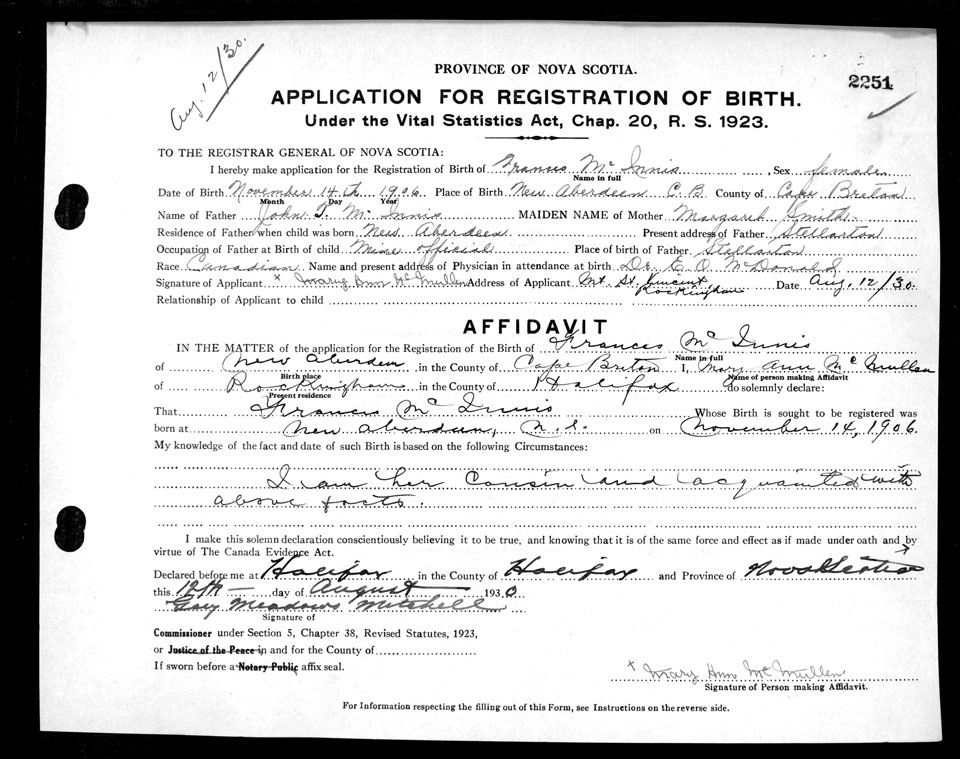 Aug. 12/30.
PROVINCE OF NOVA SCOTIA.
2251
APPLICATION FOR REGISTRATION OF BIRTH.
Under the Vital Statistics Act, Chap. 20, R. S. 1923.
TO THE REGISTRAR GENERAL OF NOVA SCOTIA:
I hereby make application for the Registration of Birth of Frances Mc Innis, Sex female
Name in full
Date of Birth November 14th 1906 Place of Birth New Aberdeen C.B. County of Cape Breton
Month Day Year
Name of Father John T. Mc Innis MAIDEN NAME of Mother Margaret Smith
Residence of Father when child was born New Aberdeen Present address of Father Stellarton
Occupation of Father at Birth of child Mine official Place of birth of Father Stellarton
Race Canadian Name and present address of Physician in attendance at birth Dr. E. O. McDonald
Signature of Applicant x Mary Ann McMullen Address of Applicant Mt. St. Vincent Rockingham Date Aug. 12/30.
Relationship of Applicant to child
AFFIDAVIT
IN THE MATTER of the application for the Registration of the Birth of Frances Mc Innis
Name in full
of New Aberden, in the County of Cape Briton I, Mary Ann Mc Mullen
Birth place Name of person making Affidavit
of Rockingham in the County of Halifax do solemnly declare:
Present residence
That Frances Mc Innis Whose Birth is sought to be registered was
born at New Aberdeen, N.S. on November 14, 1906.
My knowledge of the fact and date of such Birth is based on the following Circumstances:
I am her Cousin and acquainted with
above facts.
I make this solemn declaration conscientiously believing it to be true, and knowing that it is of the same force and effect as if made under oath and by
virtue of The Canada Evidence Act.
Declared before me at Halifax in the County of Halifax and Province of Nova Scotia
this 12th day of August 1930
Meadows Mitchell
Signature of
Commissioner under Section 5, Chapter 38, Revised Statutes, 1923,
or Justice of the Peace in and for the County of
If sworn before a Notary Public affix seal.
x Mary Ann McMullen
Signature of Person making Affidavit.
For Information respecting the filling out of this Form, see Instructions on the reverse side.